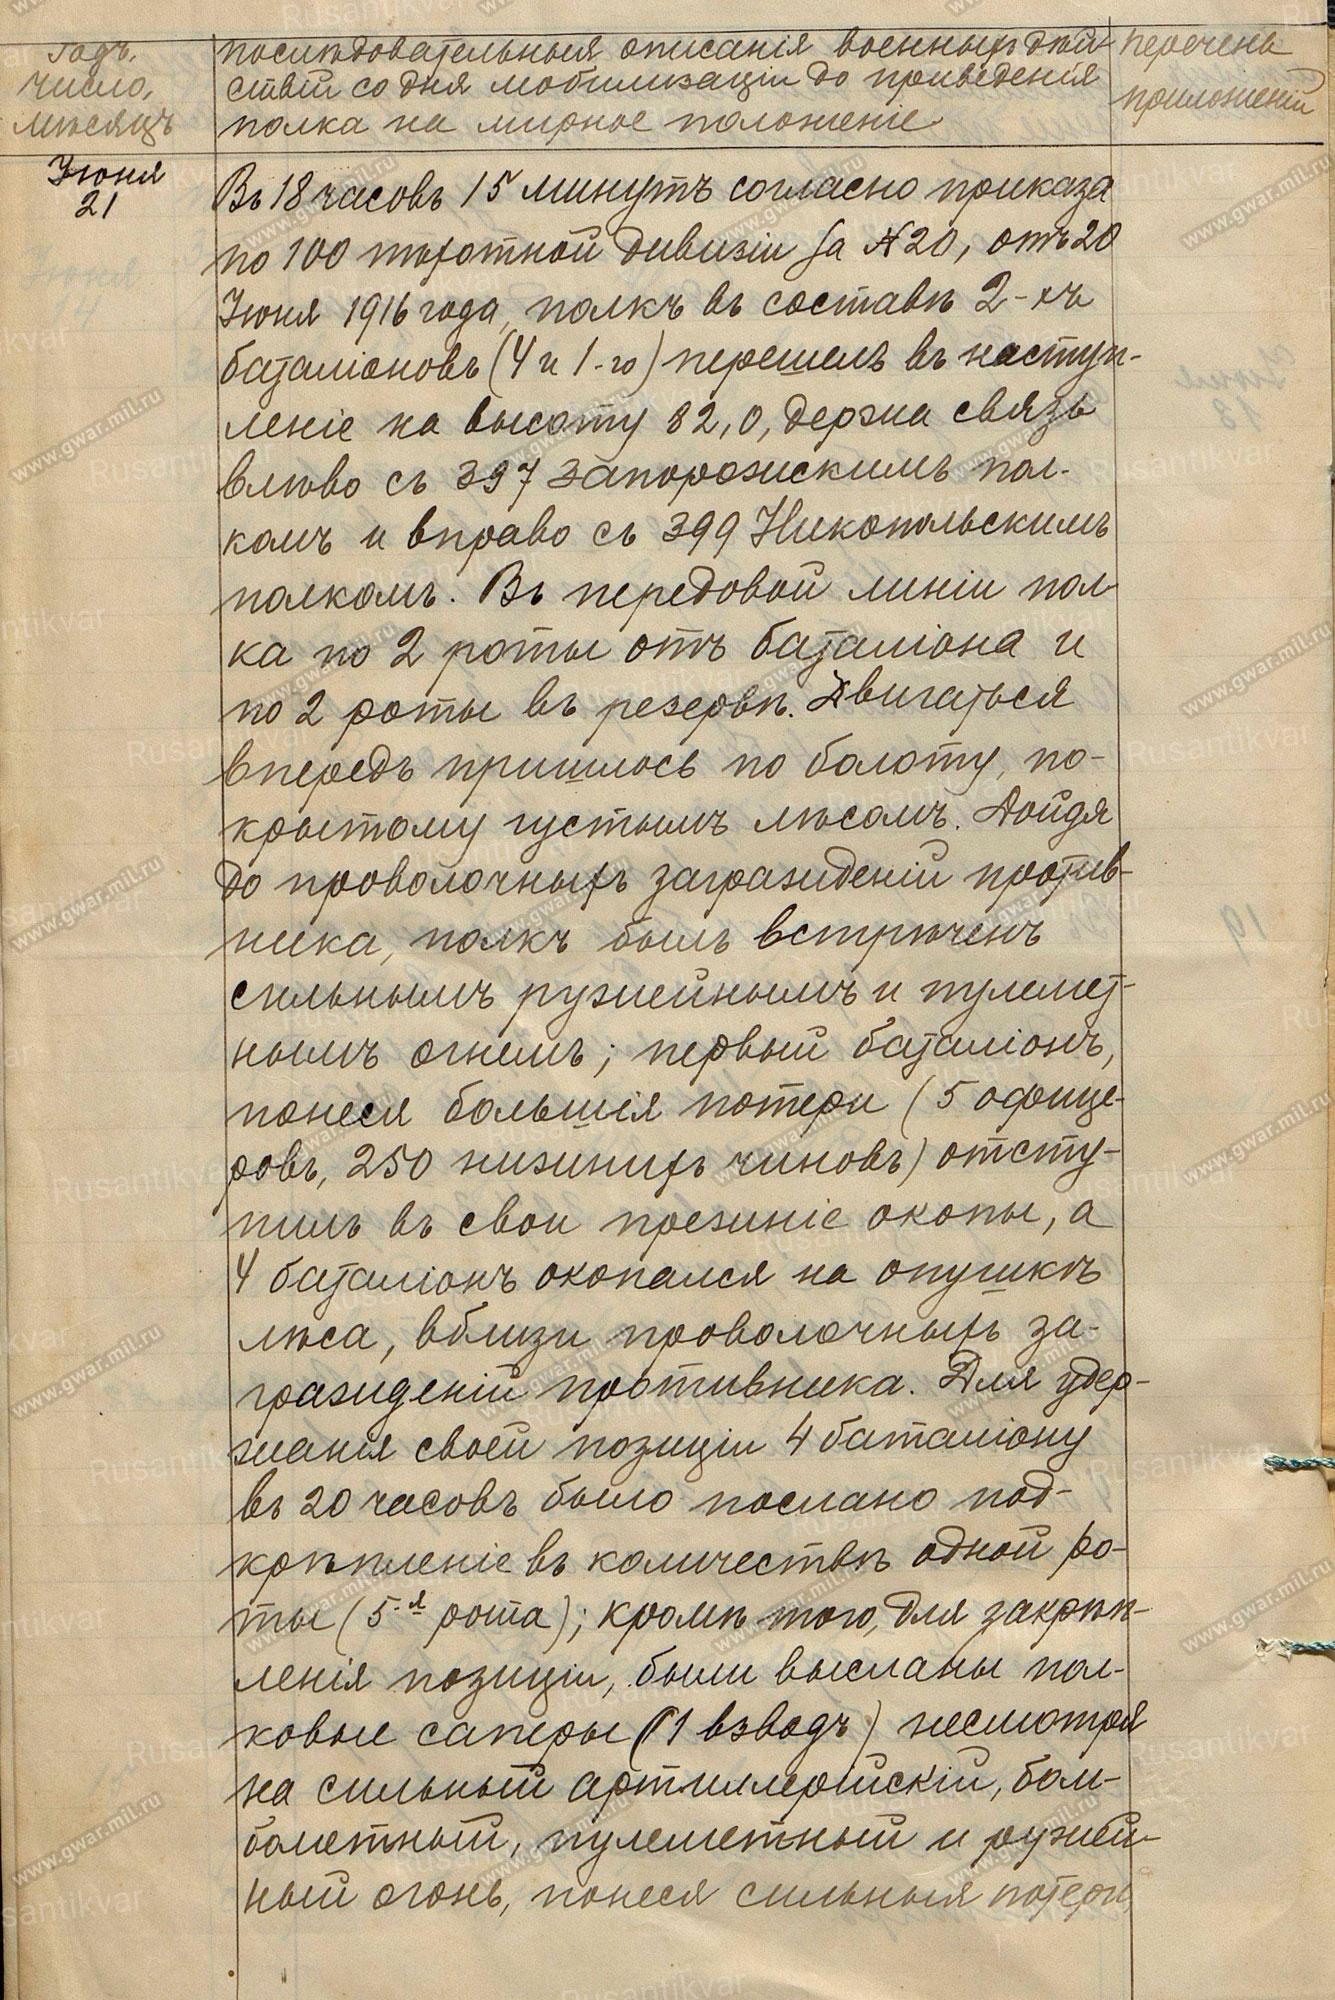 Годъ,
число,
мѣсяцъ
послѣдовательныя описанія военныхъ дѣй-
ствій со дня мобилизаціи до приведенія
полка на мирное положеніе
перечень
приложеній
Іюня
21
Въ 18 часовъ 15 минутъ согласно приказа
по 100 пѣхотной дивизіи за №20, отъ 20
Іюня 1916 года, полкъ въ составѣ 2-хъ
баталіоновъ (4 и 1-го) перешелъ въ наступ-
леніе на высоту 82,0, держа связь
влѣво съ 397 Запорожскимъ пол-
комъ и вправо съ 399 Никопольскимъ
полкомъ. Въ передовой линіи пол-
ка по 2 роты отъ баталіона и
по 2 роты въ резервѣ. Двигаться
впередъ пришлось по болоту, по-
крытому густымъ лѣсомъ. Дойдя
до проволочныхъ загражденій против-
ника, полкъ былъ встрѣченъ
сильнымъ ружейнымъ и пулемет-
нымъ огнемъ; первый баталіонъ,
понеся большія потери (5 офице-
ровъ, 250 нижнихъ чиновъ) отсту-
пилъ въ свои прежніе окопы, а
4 баталіонъ окопался на опушкѣ
лѣса, вблизи проволочныхъ за-
гражденій противника. Для удер-
жанія своей позиціи 4 баталіону
въ 20 часовъ было послано под-
крѣпленіе въ количествѣ одной ро-
ты (5-я рота); кромѣ того, для закрѣп-
ленія позиціи, были высланы пол-
ковые саперы (1 взводъ) несмотря
на сильный артиллерійскій, бом-
бометный, пулеметный и ружей-
ный огонь, понеся сильныя потери,